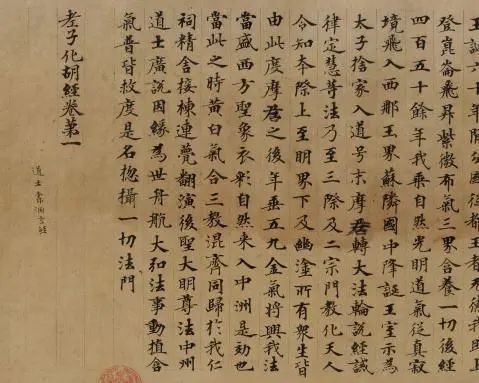 六十年間分國從都王者无德我即上
登崑崙飛昇紫微布氣三界含養一切後經
四百五十餘年我乘自然光明道氣從真寂
境飛入西那王界蘇隣國中降誕王室示為
太子捨家入道号末摩尼轉大法輪說經誡
律定慧等法乃至三際及二宗門教化天人
令知本際上至明界下及幽塗所有衆生皆
由此度摩尼之後年垂五九金氣將興我法
當盛西方聖象衣彩自然來入中洲是効也
當此之時黄白氣合三教混齊同歸於我仁
祠精舍接棟連甍翻演後聖大明尊法中州
道士廣說因緣為世舟航大弘法事動植含
氣普皆救度是名惣攝一切法門
老子化胡經卷第一
道士索洞玄經